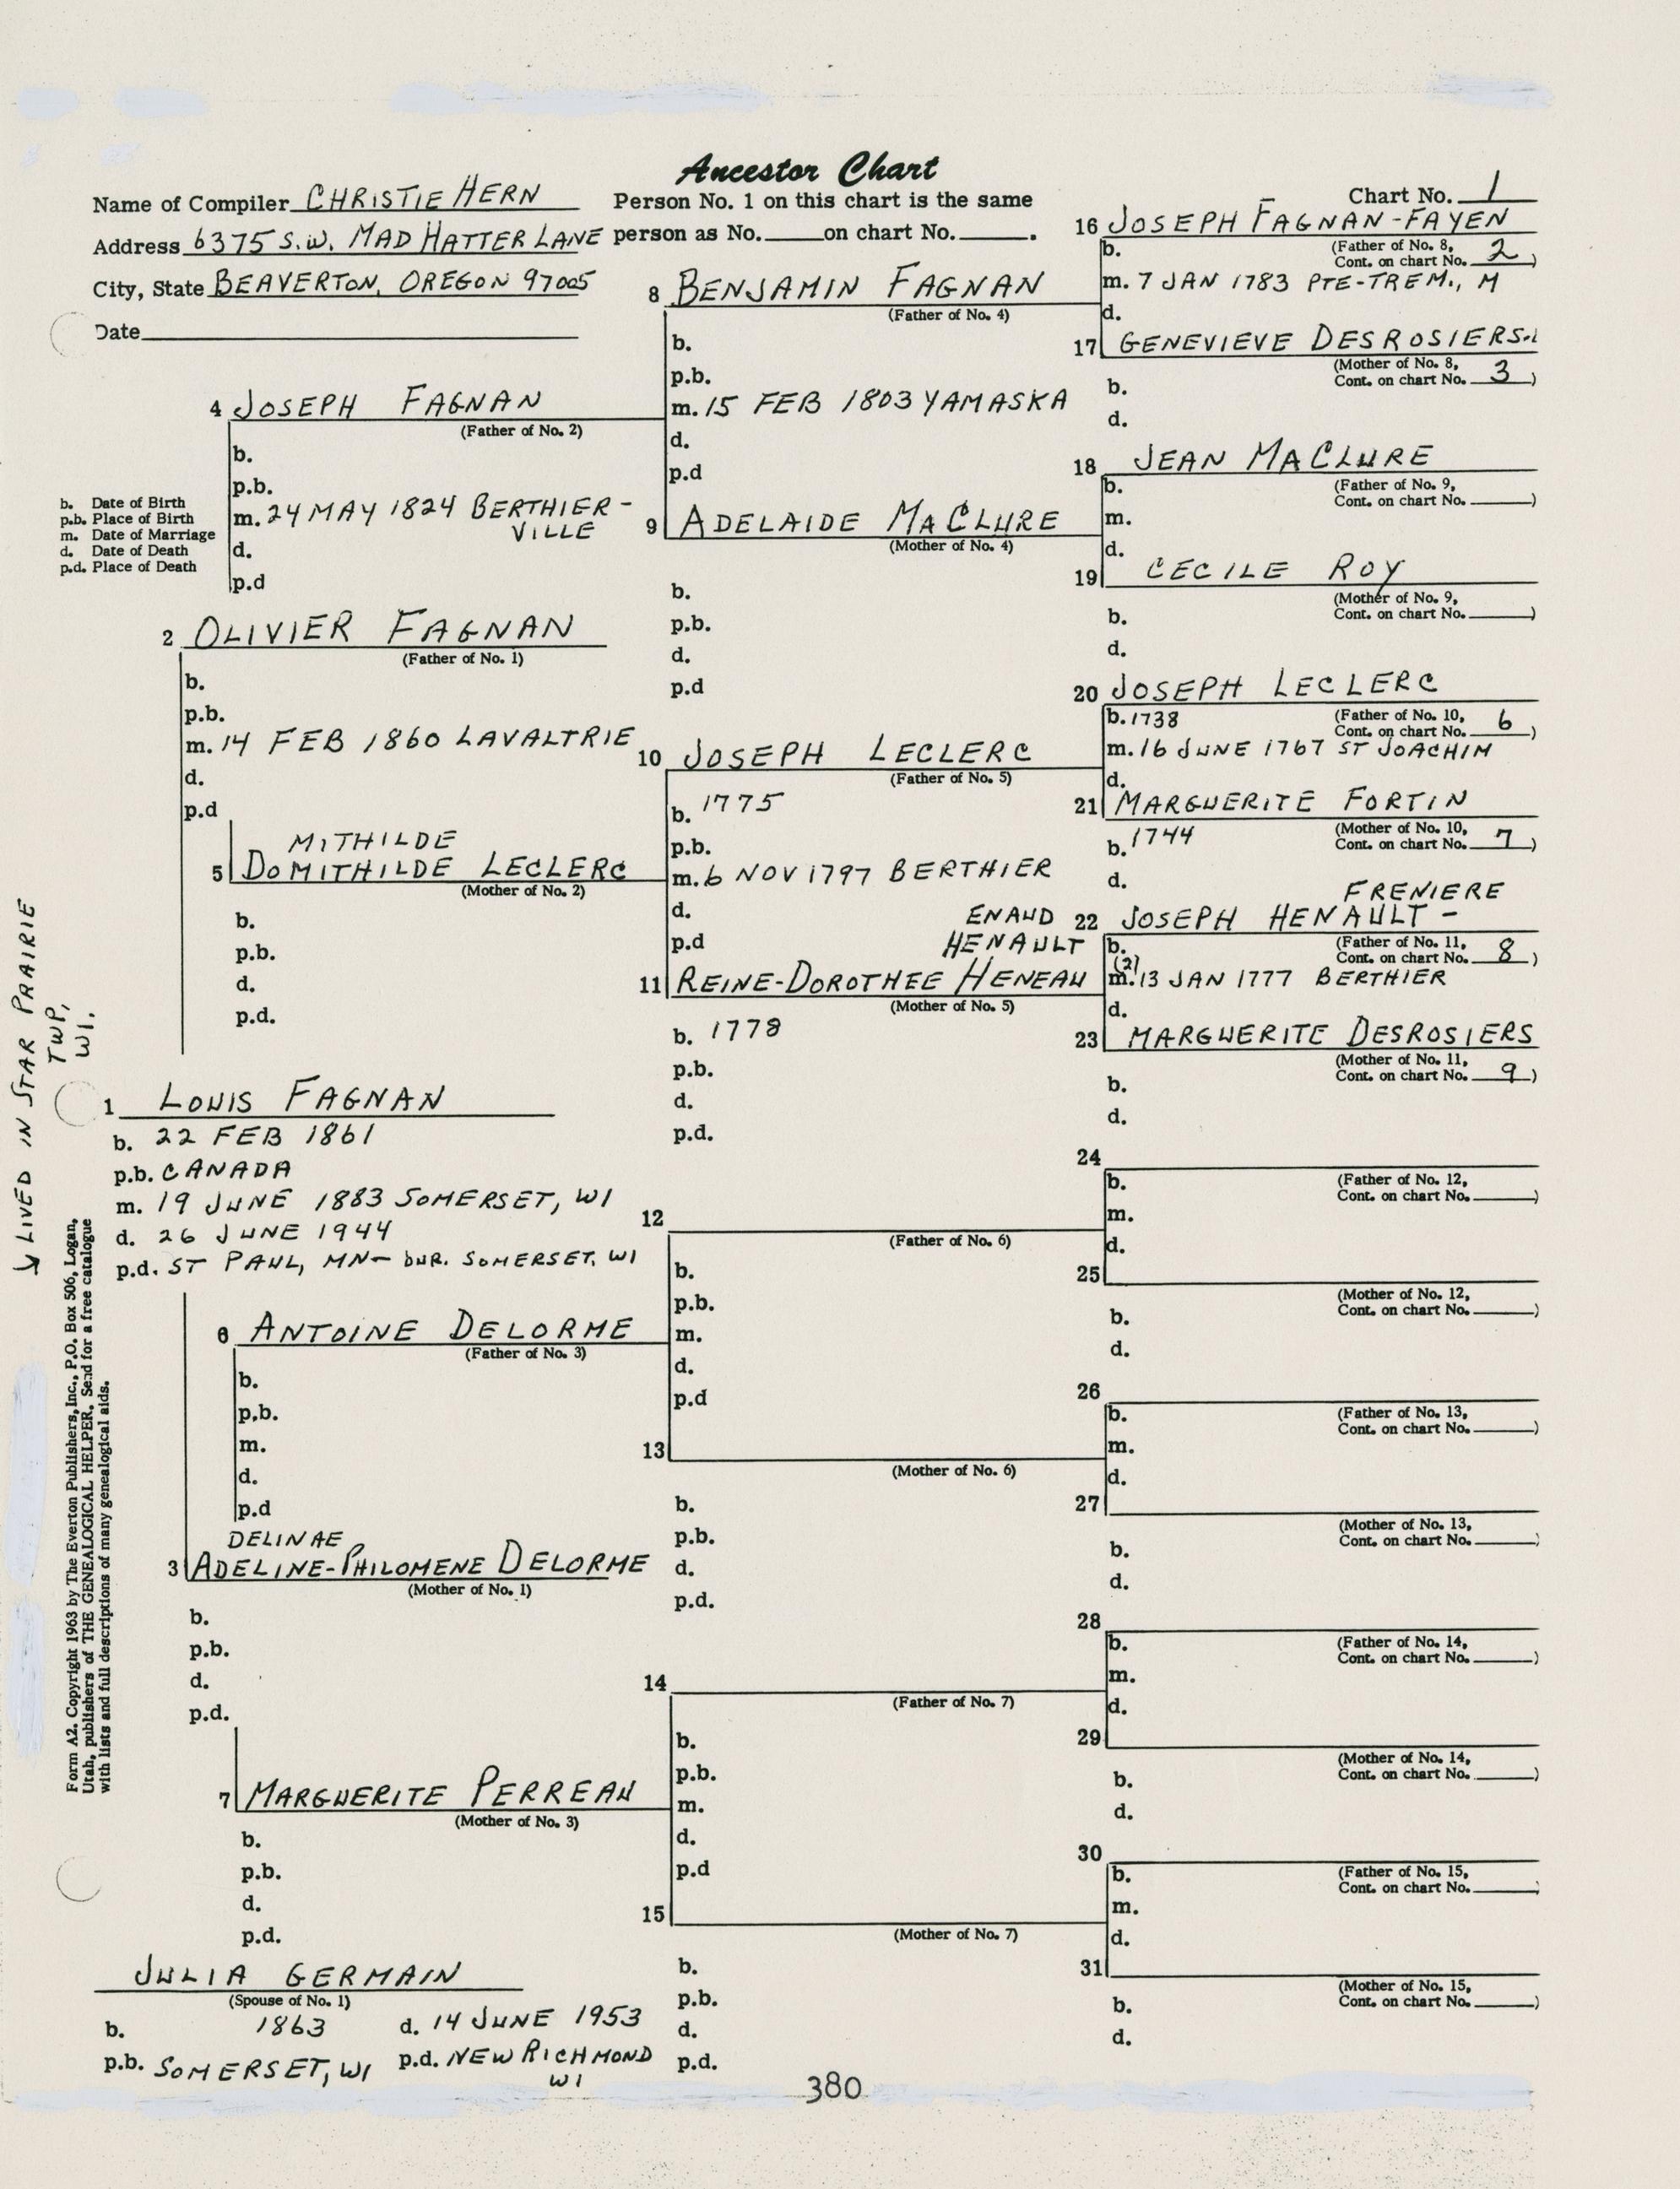 Ancestor Chart
Name of Compiler CHRISTIE HERN
Address 6375 S.W. MAD HATTER LANE
City, State BEAVERTON, OREGON 97005
Date
Person No. 1 on this chart is the same
person as No. on chart No. .
Chart No. 1
b. Date of Birth
p.b. Place of Birth
m. Date of Marriage
d. Date of Death
p.d. Place of Death
4 JOSEPH FAGNAN
(Father of No. 2)
b.
p.b.
m. 24 MAY 1824 BERTHIER-
VILLE
d.
p.d
2 OLIVIER FAGNAN
(Father of No. 1)
b.
p.b.
m. 14 FEB 1860 LAVALTRIE
d.
p.d
MITHILDE
5 DOMITHILDE LECLERC
(Mother of No. 2)
b.
p.b.
d.
p.d.
↓ LIVED IN STAR PRAIRIE
TWP,
WI.
1 LOUIS FAGNAN
b. 22 FEB 1861
p.b. CANADA
m. 19 JUNE 1883 SOMERSET, WI
d. 26 JUNE 1944
p.d. ST PAUL, MN - bUR. SOMERSET, WI
Form A2. Copyright 1963 by The Everton Publishers, Inc., P.O. Box 506, Logan,
Utah, publishers of THE GENEALOGICAL HELPER. Send for a free catalogue
with lists and full descriptions of many genealogical aids.
6 ANTOINE DELORME
(Father of No. 3)
b.
p.b.
m.
d.
p.d
DELINAE
3 ADELINE-PHILOMENE DELORME
(Mother of No. 1)
b.
p.b.
d.
p.d.
7 MARGUERITE PERREAU
(Mother of No. 3)
b.
p.b.
d.
p.d.
JULIA GERMAIN
(Spouse of No. 1)
b. 1863 d. 14 JUNE 1953
p.b. SOMERSET, WI p.d. NEW RICHMOND
WI
8 BENJAMIN FAGNAN
(Father of No. 4)
b.
p.b.
m. 15 FEB 1803 YAMASKA
d.
p.d
9 ADELAIDE MACLURE
(Mother of No. 4)
b.
p.b.
d.
p.d
10 JOSEPH LECLERC
(Father of No. 5)
b. 1775
p.b.
m. 6 NOV 1797 BERTHIER
d.
p.d
ENAUD
HENAULT
11 REINE-DOROTHEE HENEAU
(Mother of No. 5)
b. 1778
p.b.
d.
p.d.
12
(Father of No. 6)
b.
p.b.
m.
d.
p.d
13
(Mother of No. 6)
b.
p.b.
d.
p.d.
14
(Father of No. 7)
b.
p.b.
m.
d.
p.d
15
(Mother of No. 7)
b.
p.b.
d.
p.d.
16 JOSEPH FAGNAN-FAYEN
b. (Father of No. 8,
Cont. on chart No. 2)
m. 7 JAN 1783 PTE-TREM., M
d.
17 GENEVIEVE DESROSIERS
(Mother of No. 8,
Cont. on chart No. 3)
b.
d.
18 JEAN MACLURE
b. (Father of No. 9,
Cont. on chart No. )
m.
d.
19 CECILE ROY
(Mother of No. 9,
Cont. on chart No. )
b.
d.
20 JOSEPH LECLERC
b. 1738 (Father of No. 10,
Cont. on chart No. 6)
m. 16 JUNE 1767 ST JOACHIM
d.
21 MARGUERITE FORTIN
(Mother of No. 10,
b. 1744 Cont. on chart No. 7)
d.
FRENIERE
22 JOSEPH HENAULT -
b. (Father of No. 11,
Cont. on chart No. 8)
(2)
m. 13 JAN 1777 BERTHIER
d.
23 MARGUERITE DESROSIERS
(Mother of No. 11,
Cont. on chart No. 9)
b.
d.
24
b. (Father of No. 12,
Cont. on chart No. )
m.
d.
25
(Mother of No. 12,
Cont. on chart No. )
b.
d.
26
b. (Father of No. 13,
Cont. on chart No. )
m.
d.
27
(Mother of No. 13,
Cont. on chart No. )
b.
d.
28
b. (Father of No. 14,
Cont. on chart No. )
m.
d.
29
(Mother of No. 14,
Cont. on chart No. )
b.
d.
30
b. (Father of No. 15,
Cont. on chart No. )
m.
d.
31
(Mother of No. 15,
Cont. on chart No. )
b.
d.
380